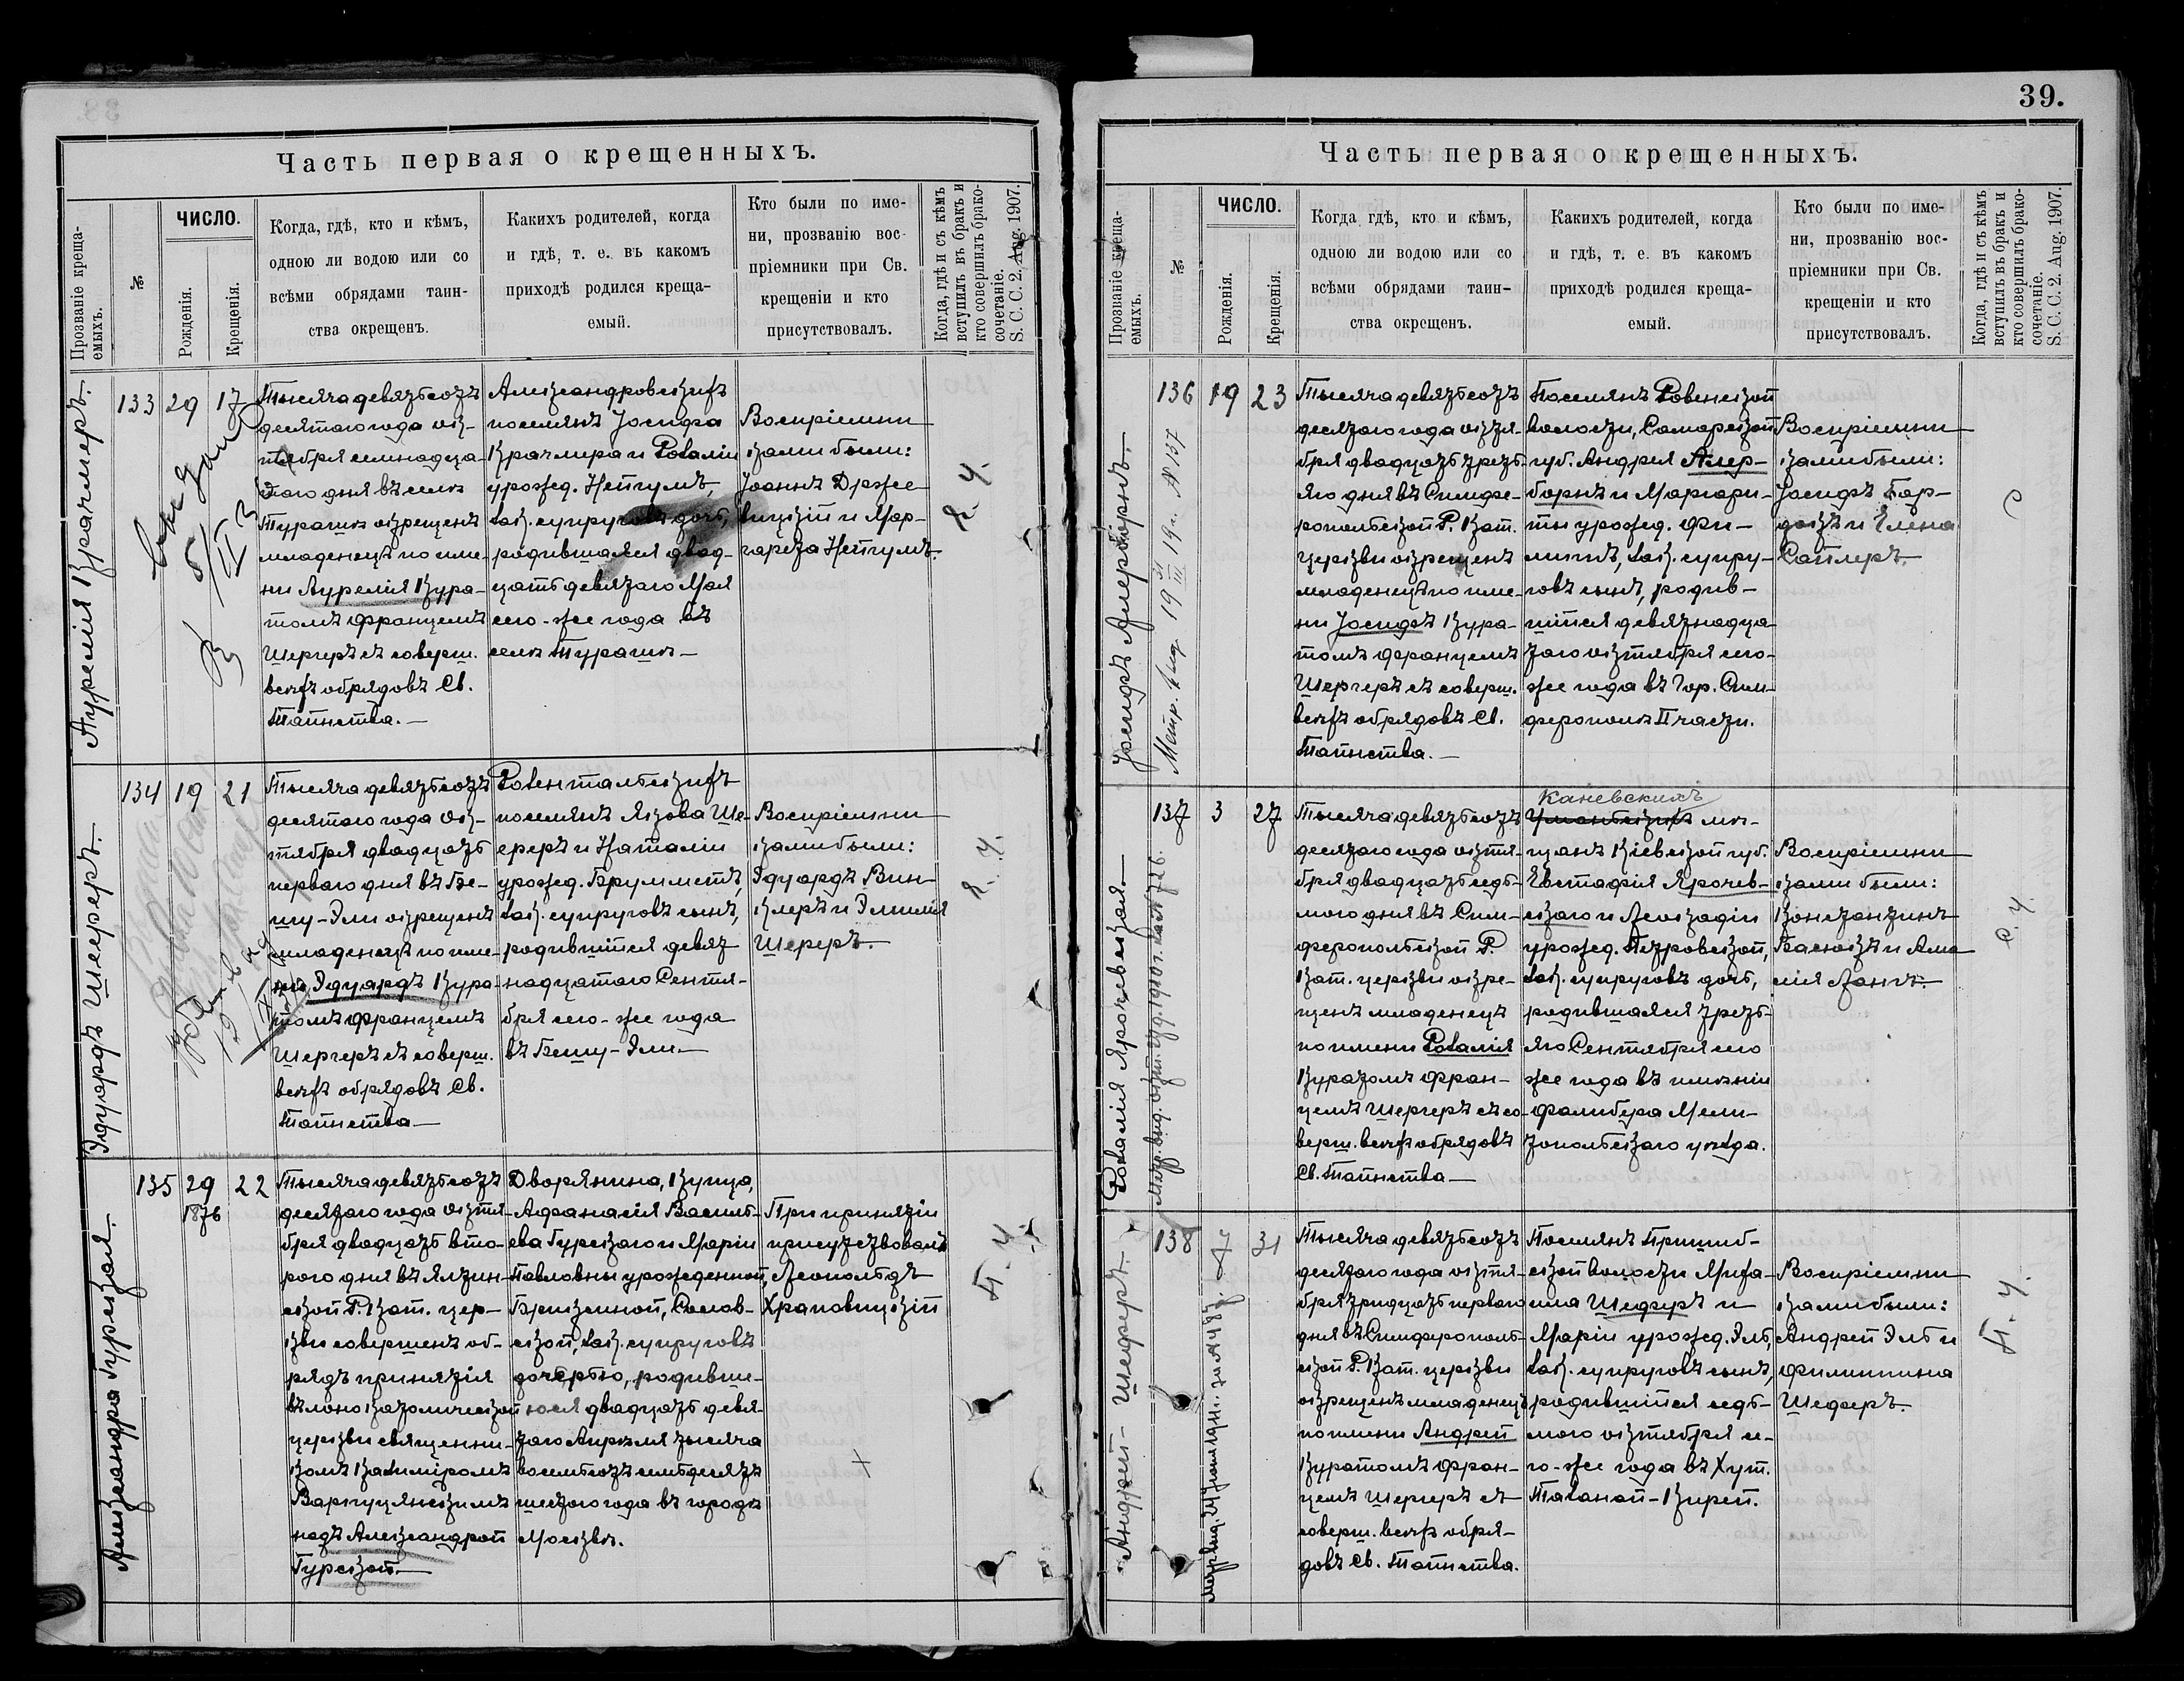 Часть первая о крещенныхъ.
Прозваніе креща-
емыхъ.
№
ЧИСЛО.
Рожденія.
Крещенія.
Когда, гдѣ, кто и кѣмъ,
одною ли водою или со
всѣми обрядами таин-
ства окрещенъ.
Какихъ родителей, когда
и гдѣ, т. е. въ какомъ
приходѣ родился креща-
емый.
Кто были по име-
ни, прозванію вос-
пріемники при Св.
крещеніи и кто
присутствовалъ.
Когда, гдѣ и съ кѣмъ
вступилъ въ бракъ и
кто совершилъ брако-
сочетаніе.
S. C. C. 2. Aug. 1907.
Аурелія Крачмеръ.
133
29
17
Тысяча девятьсотъ
десятаго года ок-
тября семнадца-
таго дня въ селѣ
Турашѣ окрещенъ
младенецъ по име-
ни Аурелія Кура-
томъ Францемъ
Шергеръ съ соверш.
всѣхъ обрядовъ Св.
Таинства.—
Александровскихъ
поселянъ Іосифа
Крачмера и Розаліи
урожд. Нейгумъ,
зак. супруговъ дочь,
родившаяся двад-
цать девятаго Мая
сего-же года въ
селѣ Турашѣ—
Воспріемни
ками были:
Іоаннъ Држе
вицкій и Мар-
гарета Нейгумъ.
Эдуардъ Шереръ.
134
19
21
Тысяча девятьсотъ
десятаго года Ок-
тября двадцать
перваго дня въ Бе-
шу-Эли окрещенъ
младенецъ по име-
ни Эдуардъ Кура-
томъ Францемъ
Шергеръ съ соверш.
всѣхъ обрядовъ Св.
Таинства—
Розентальскихъ
поселянъ Якова Ше-
реръ и Наталіи
урожд. Брумметъ,
зак. супруговъ сынъ,
родившійся девят
надцатаго Сентя-
бря сего-же года
въ Бешу-Эли.—
Воспріемни
ками были:
Эдуардъ Вин-
клеръ и Эмилія
Шереръ.
Александра Гурская.
135
29
1876
22
Тысяча девятьсотъ
десятаго года Октя-
бря двадцать вто-
рого дня въ Ялтин-
ской Р. Кат. цер-
кви совершенъ об-
рядъ принятія
въ лоно католической
церкви священни-
комъ Казиміромъ
Варпуцянскимъ
надъ Александрой
Гурской.—
Дворянина, купца,
Афанасія Василь-
ева Гурскаго и Маріи
Павловны урожденной,
зак. супруговъ
дочерью, родивше-
юся двадцать девя-
таго Апрѣля тысяча
восемьсотъ семьдесятъ
шестаго года въ городѣ
Москвѣ.
При принятіи
присутствовалъ
Леопольдъ
Храповицкій
39.
Часть первая о крещенныхъ.
Прозваніе креща-
емыхъ.
№
ЧИСЛО.
Рожденія.
Крещенія.
Когда гдѣ, кто и кѣмъ,
одною ли водою или со
всѣми обрядами таин-
ства окрещенъ.
Какихъ родителей, когда
и гдѣ, т. е. въ какомъ
приходѣ родился креща-
емый.
Кто были по име-
ни, прозванію вос-
пріемники при Св.
крещеніи и кто
присутствовалъ.
Когда, гдѣ и съ кѣмъ
вступилъ въ бракъ и
кто совершилъ брако-
сочетаніе.
S. C. C. 2. Aug. 1907.
Іосифъ Алерборнъ.
136
19
23
Тысяча девятьсотъ
десятаго года октя-
бря двадцать треть-
яго дня въ Симфе-
ропольской Р. Кат.
церкви окрещенъ
младенецъ по име-
ни Іосифъ Кура-
томъ Францемъ
Шергеръ съ соверш.
всѣхъ обрядовъ Св.
Таинства.—
Поселянъ Ровенской
волости, Самарской
губ. Андрея Алер-
борнъ и Маргари-
ты урожд. Фи-
липпъ, зак. супру-
говъ сынъ, родив-
шійся девятнадца
таго октября сего-
же года въ гор. Сим-
ферополѣ II части.
Воспріемни
ками были:
Іосифъ Бар-
и Елена
Сатлеръ.
Розалія Ярочевская.—
137
3
27
Тысяча девятьсотъ
десятаго года октя-
бря двадцать седь-
мого дня въ Сим-
феропольской Р.
Кат. церкви окре-
щенъ младенецъ
по имени Розалія
Куратомъ Фран-
цемъ Шергеръ съ со-
верш. всѣхъ обрядовъ
Св. Таинства—
Каневскихъ
Уманьскихъ мѣ-
щанъ Кіевской губ.
Евстафія Ярочев-
скаго и Леокадіи
урожд. Петровской,
зак. супруговъ дочь,
родившаяся треть-
яго Сентября сего
же года въ имѣніи
Фальцфера Мели-
топольскаго уѣзда.
Воспріемни
ками были:
Константинъ
и Ама
лія Лангъ.
Андрей Шеферъ.
138
7
31
Тысяча девятьсотъ
десятаго года октя-
бря тридцать перваго
дня въ Симферополь-
ской Р. Кат. церкви
окрещенъ младенецъ
по имени Андрей
Куратомъ Фран-
цемъ Шергеръ съ
соверш. всѣхъ обря-
довъ Св. Таинства.
Поселянъ Пришиб-
ской волости Миха-
ила Шеферъ и
Маріи урожд. Эль,
зак. супруговъ сынъ,
родившійся седь-
мого октября се-
го-же года въ Хут.
Тазанай-Кирей.
Воспріемни
ками были:
Андрей Эль и
Филиппина
Шеферъ.